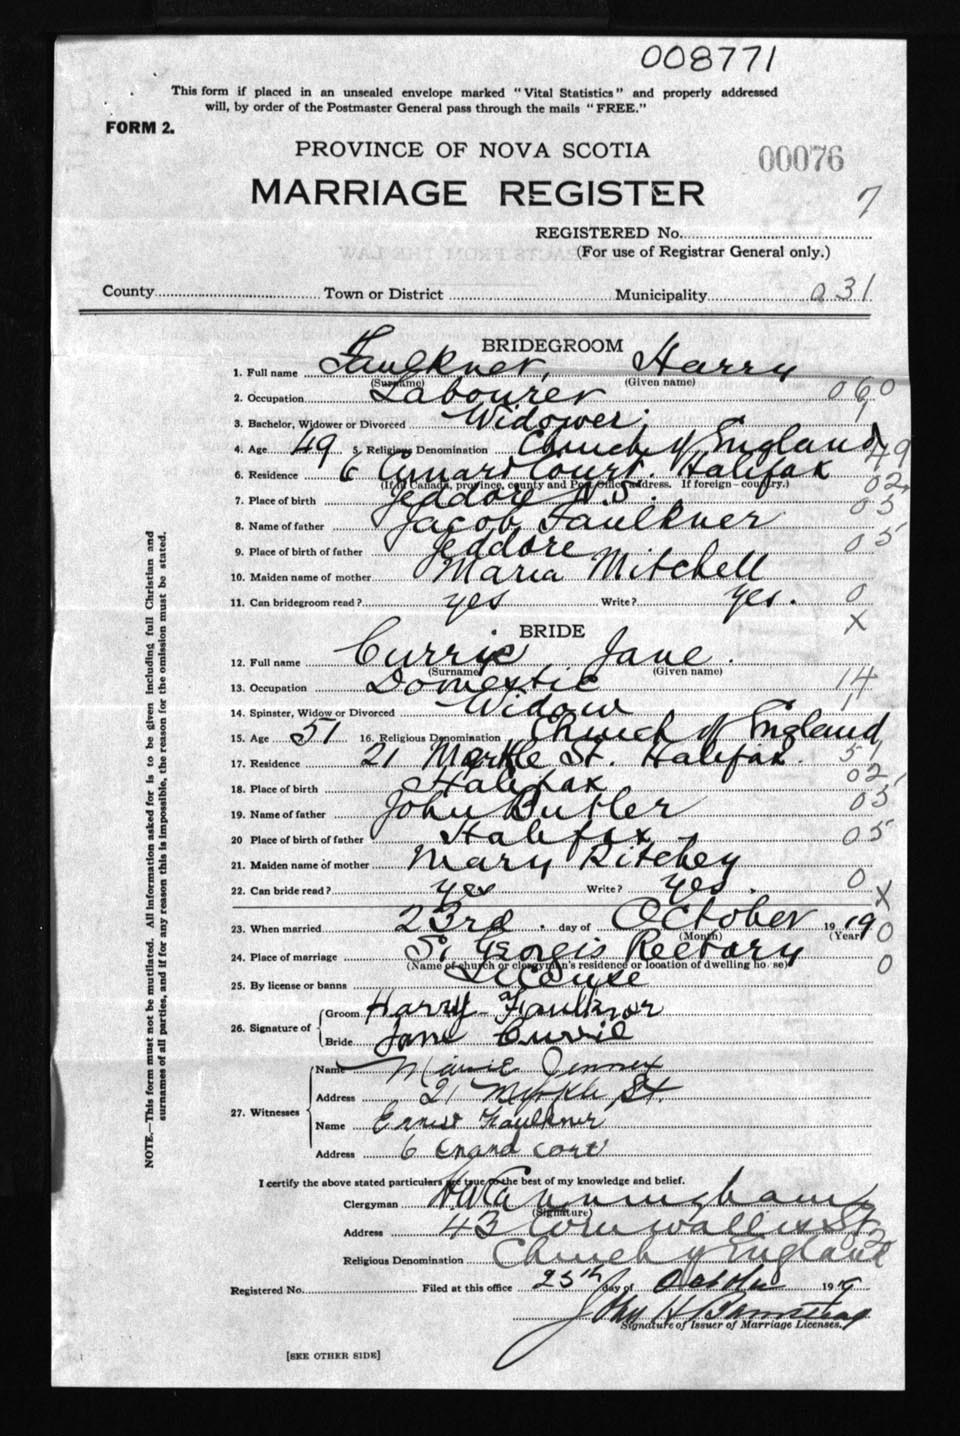 008771
This form if placed in an unsealed envelope marked "Vital Statistics" and properly addressed
will, by order of the Postmaster General pass through the mails "FREE."
FORM 2.
PROVINCE OF NOVA SCOTIA
00076
MARRIAGE REGISTER
7
REGISTERED No.
(For use of Registrar General only.)
County Town or District Municipality 031
BRIDEGROOM
1. Full name Faulkner, Harry
(Surname) (Given name)
2. Occupation Labourer 060
3. Bachelor, Widower or Divorced Widower. 1
4. Age 49 5. Religious Denomination Church of England 49
6. Residence 6 Cunard Court. Halifax 02
(If in Canada, province, county and Post office address. If foreign—country.)
7. Place of birth Jeddore N.S. 05
8. Name of father Jacob Faulkner
9. Place of birth of father Jeddore 05
10. Maiden name of mother Maria Mitchell
11. Can bridegroom read? yes Write? yes. 0
X
BRIDE
12. Full name Currie Jane.
(Surname) (Given name)
13. Occupation Domestic 14
14. Spinster, Widow or Divorced Widow 1
15. Age 51 16. Religious Denomination Church of England
17. Residence 21 Myrtle St. Halifax. 51
18. Place of birth Halifax 02
19. Name of father John Butler 05
20 Place of birth of father Halifax 05
21. Maiden name of mother Mary Ritchey
22. Can bride read? yes Write? yes. 0
X
23. When married 23rd. day of October 1919 0
(Month) (Year)
24. Place of marriage St Georges Rectory 0
(Name of church or clergyman's residence or location of dwelling house)
25. By license or banns License
26. Signature of Groom Harry Faulknor
Bride Jane Currie
27. Witnesses
Name Minnie Jennex
Address 21 Myrtle St.
Name Ernest Faulkner
Address 6 Cnand Cort
I certify the above stated particulars are true to the best of my knowledge and belief.
Clergyman H W Cunningham
(Signature)
Address 43 Cornwallis St
Religious Denomination Church of England
Registered No. Filed at this office 25th day of October 1919
John H
Signature of Issuer of Marriage Licenses.
[SEE OTHER SIDE]
NOTE.—This form must not be mutilated. All information asked for is to be given including full Christian and
surnames of all parties, and if for any reason this is impossible, the reason for the omission must be stated.